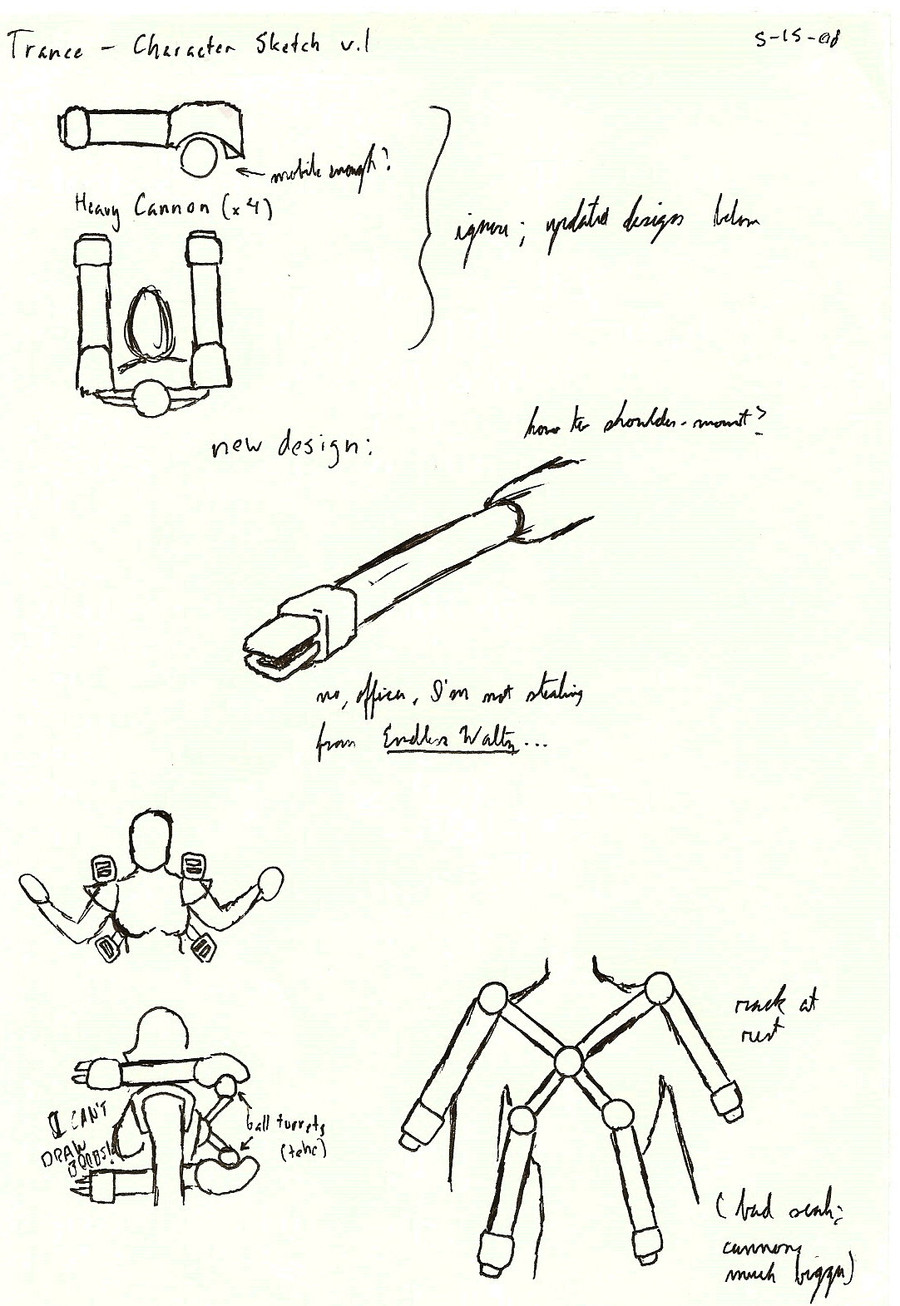 Trance - Character Sketch v.1
5-15-08
mobile enough?
Heavy Cannon (x4)
ignore; updated designs below
how to shoulder-mount?
new design:
no, officer, I'm not stealing
from Endless Waltz...
rack at
rest
I CAN'T
DRAW
BOOBS!!
ball turrets
(tehe)
(bad scale;
cannons
much bigger)